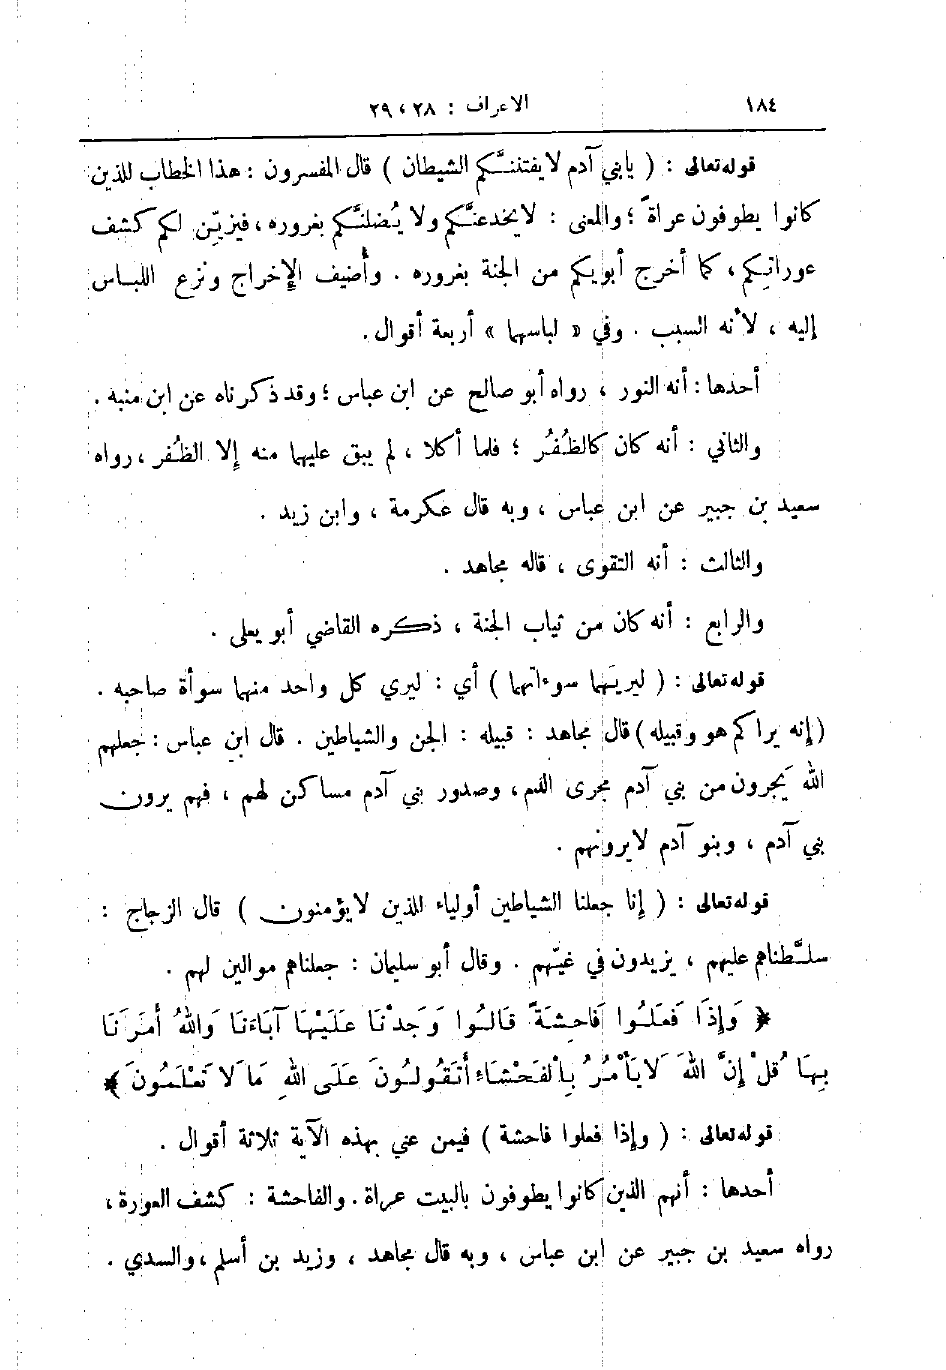 ١٨٤
الاعراف : ٢٨ ، ٢٩
قوله تعالى : ( يابني آدم لا يفتننَّكم الشيطان ) قال المفسرون : هذا الخطاب للذين
كانوا يطوفون عراةً ؛ والمعنى : لا يخدعنَّكم ولا يُضلنَّكم بغروره ، فيزيّن لكم كشف
عوراتكم ، كما أخرج أبويكم من الجنة بغروره . وأضيف الإخراج ونزع اللباس
إليه ، لأنه السبب . وفي « لباسهما » أربعة أقوال .
أحدها : أنه النور ، رواه أبو صالح عن ابن عباس ؛ وقد ذكرناه عن ابن منبه .
والثاني : أنه كان كالظُفُر ؛ فلما أكلا ، لم يبق عليهما منه إلا الظُفر ، رواه
سعيد بن جبير عن ابن عباس ، وبه قال عكرمة ، وابن زيد .
والثالث : أنه التقوى ، قاله مجاهد .
والرابع : أنه كان من ثياب الجنة ، ذكره القاضي أبو يعلى .
قوله تعالى : ( ليريَهما سوءاتهما ) أي : ليري كل واحد منهما سوأة صاحبه .
( إنه يراكم هو وقبيله ) قال مجاهد : قبيله : الجن والشياطين . قال ابن عباس : جعلهم
الله يَجرون من بني آدم مجرى الدم ، وصدور بني آدم مساكن لهم ، فهم يرون
بني آدم ، وبنو آدم لا يرونهم .
قوله تعالى : ( إنا جعلنا الشياطين أولياء للذين لا يؤمنون ) قال الزجاج :
سلَّطناهم عليهم ، يزيدون في غيّهم . وقال أبو سليمان : جعلناهم موالين لهم .
﴿ وَإِذَا فَعَلُوا فَاحِشَةً قَالُوا وَجَدْنَا عَلَيْهَا آبَاءَنَا وَاللهُ أَمَرَنَا
بِهَا قُلْ إِنَّ اللهَ لَا يَأْمُرُ بِالْفَحْشَاءِ أَتَقُولُونَ عَلَى اللهِ مَا لَا تَعْلَمُونَ ﴾
قوله تعالى : ( وإذا فعلوا فاحشة ) فيمن عني بهذه الآية ثلاثة أقوال .
أحدها : أنهم الذين كانوا يطوفون بالبيت عراة . والفاحشة : كشف العورة ،
رواه سعيد بن جبير عن ابن عباس ، وبه قال مجاهد ، وزيد بن أسلم ، والسدي .